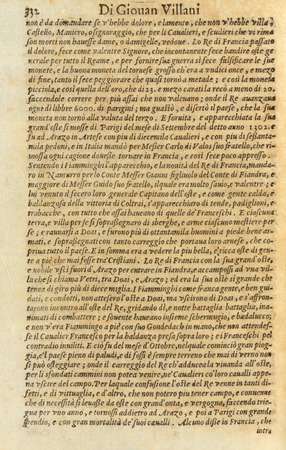 332 Di Giouan Villani
non è da domandare se v'hebbe dolore, e lamento, che non v'hebbe villa,
Castello, Maniero, o signoraggio, che per li Caualieri, e scudieri che vi rima
son morti non hauesse dame, o damigelle, vedoue. Lo Re di Francia passato
il dolore, fece come valentre Signore, che incontanente fece bandire oste ge
nerale per tutto il Reame, e per fornire sua guerra si fece falsificare le sue
monete, e la buona moneta del tornese grosso ch'era a vndici once, e mezzo
di fine, tanto il fece peggiorare che quasi tornò a metade, e così la moneta
picciola, e così quella dell'oro, che di 23. e mezo carati la recò a meno di 20.
faccendole correre per più assai che non valeuano; onde il Re auanzaua
ogni dì libbre 6000. di parigini, ma guastò, e disertò il paese, che la sua
moneta non tornò alla valuta del terzo. E fornita, e apparecchiata la sua
grand'oste si mosse di Parigi del mese di Settembre del detto anno 1302.
fu ad Arazo in Artese con più di diecemila Caualieri, e con più di sessanta-
mila pedoni, e in Italia mandò per Messer Carlo di Valos suo fratello, che ri-
mossa ogni cagione douesse tornare in Francia, e così fece poco appresso.
Sentendo i Fiamminghi l'apparecchio, e la venuta del Re di Francia, manda-
ro in Namurro per lo Conte Messer Gianni figliuolo del Conte di Fiandra, e
maggiore di Messer Guido suo fratello, il quale era molto sauio, e valente; e
lui venuto il feccero loro generale Capitano dell'oste, e come gente calda, e
baldanzosa della vittoria di Coltrai, s'apparecchiaro di tende, padiglioni, e
trabacche, con tutto che assai hauieno di quelle de' Franceschi. E ciascuna
terra, e villa per se si soprasegnaro di sberghe, e arme ciascuno mestiere per
se; e raunarsi a Doai, e furono più di ottantamila huomini a piede bene ar-
mati, e soprasegnati con tanto carreggio che portaua loro arnese, che co-
priua tutto il paese. E in somma era vedere la più bella, e ricca oste di gen-
te a piè che mai fosse tra Cristiani. Lo Re di Francia con la sua grand'oste,
e nobile vscì fuori d'Arazo per entrare in Fiandra, e accamposi ad vna vil-
la che si chiama Vetri, tra Doai, e Arazo; ed era la sua oste si grande che
tenea di giro più di diece miglia. I Fiamminghi come franca gente, e ben gui-
dati, e condotti, non attesero l'oste a Doai, ma vscirono di Doai, e s'affron-
taro incontro all'oste del Re, gridando dì, e notte battaglia, battaglia, ina-
nimati di combattere; e souente haueano insieme scherrmugio, e badalucco;
e non v'era Fiammingo a piè con suo Goudedach in mano, che non attendes-
se il Caualiere Francesco per la baldanza presa sopra loro; e i Franceschi pel
contradio inuiliti. E ciò fu del mese d'Ottobre, nel quale cominciò gran piog-
gia, e 'l paese pieno di paludi, e di fossi è sempre terreno che mai di verno non
si può osteggiare; onde il carreggio del Re ch'adducea la vivanda all'oste,
per li sfondati cammini non potea venire, ne' Caualieri co' loro caualli appe-
na vscire del campo. Per laquale confusione l'oste del Re venne in tanti di-
fetti, e di vittuaglia, e d'altro, che non poteano più tener campo, e conuenne
che di necessità si leuasse da oste con grand'onta, e vergogna, faccendo trie-
gua per vno anno, e tornossi addietro ad Arazo, e poi a Parigi con grande
spendio, e con gran mortalità de' suoi caualli. Alcuno disse in Francia, che
intra